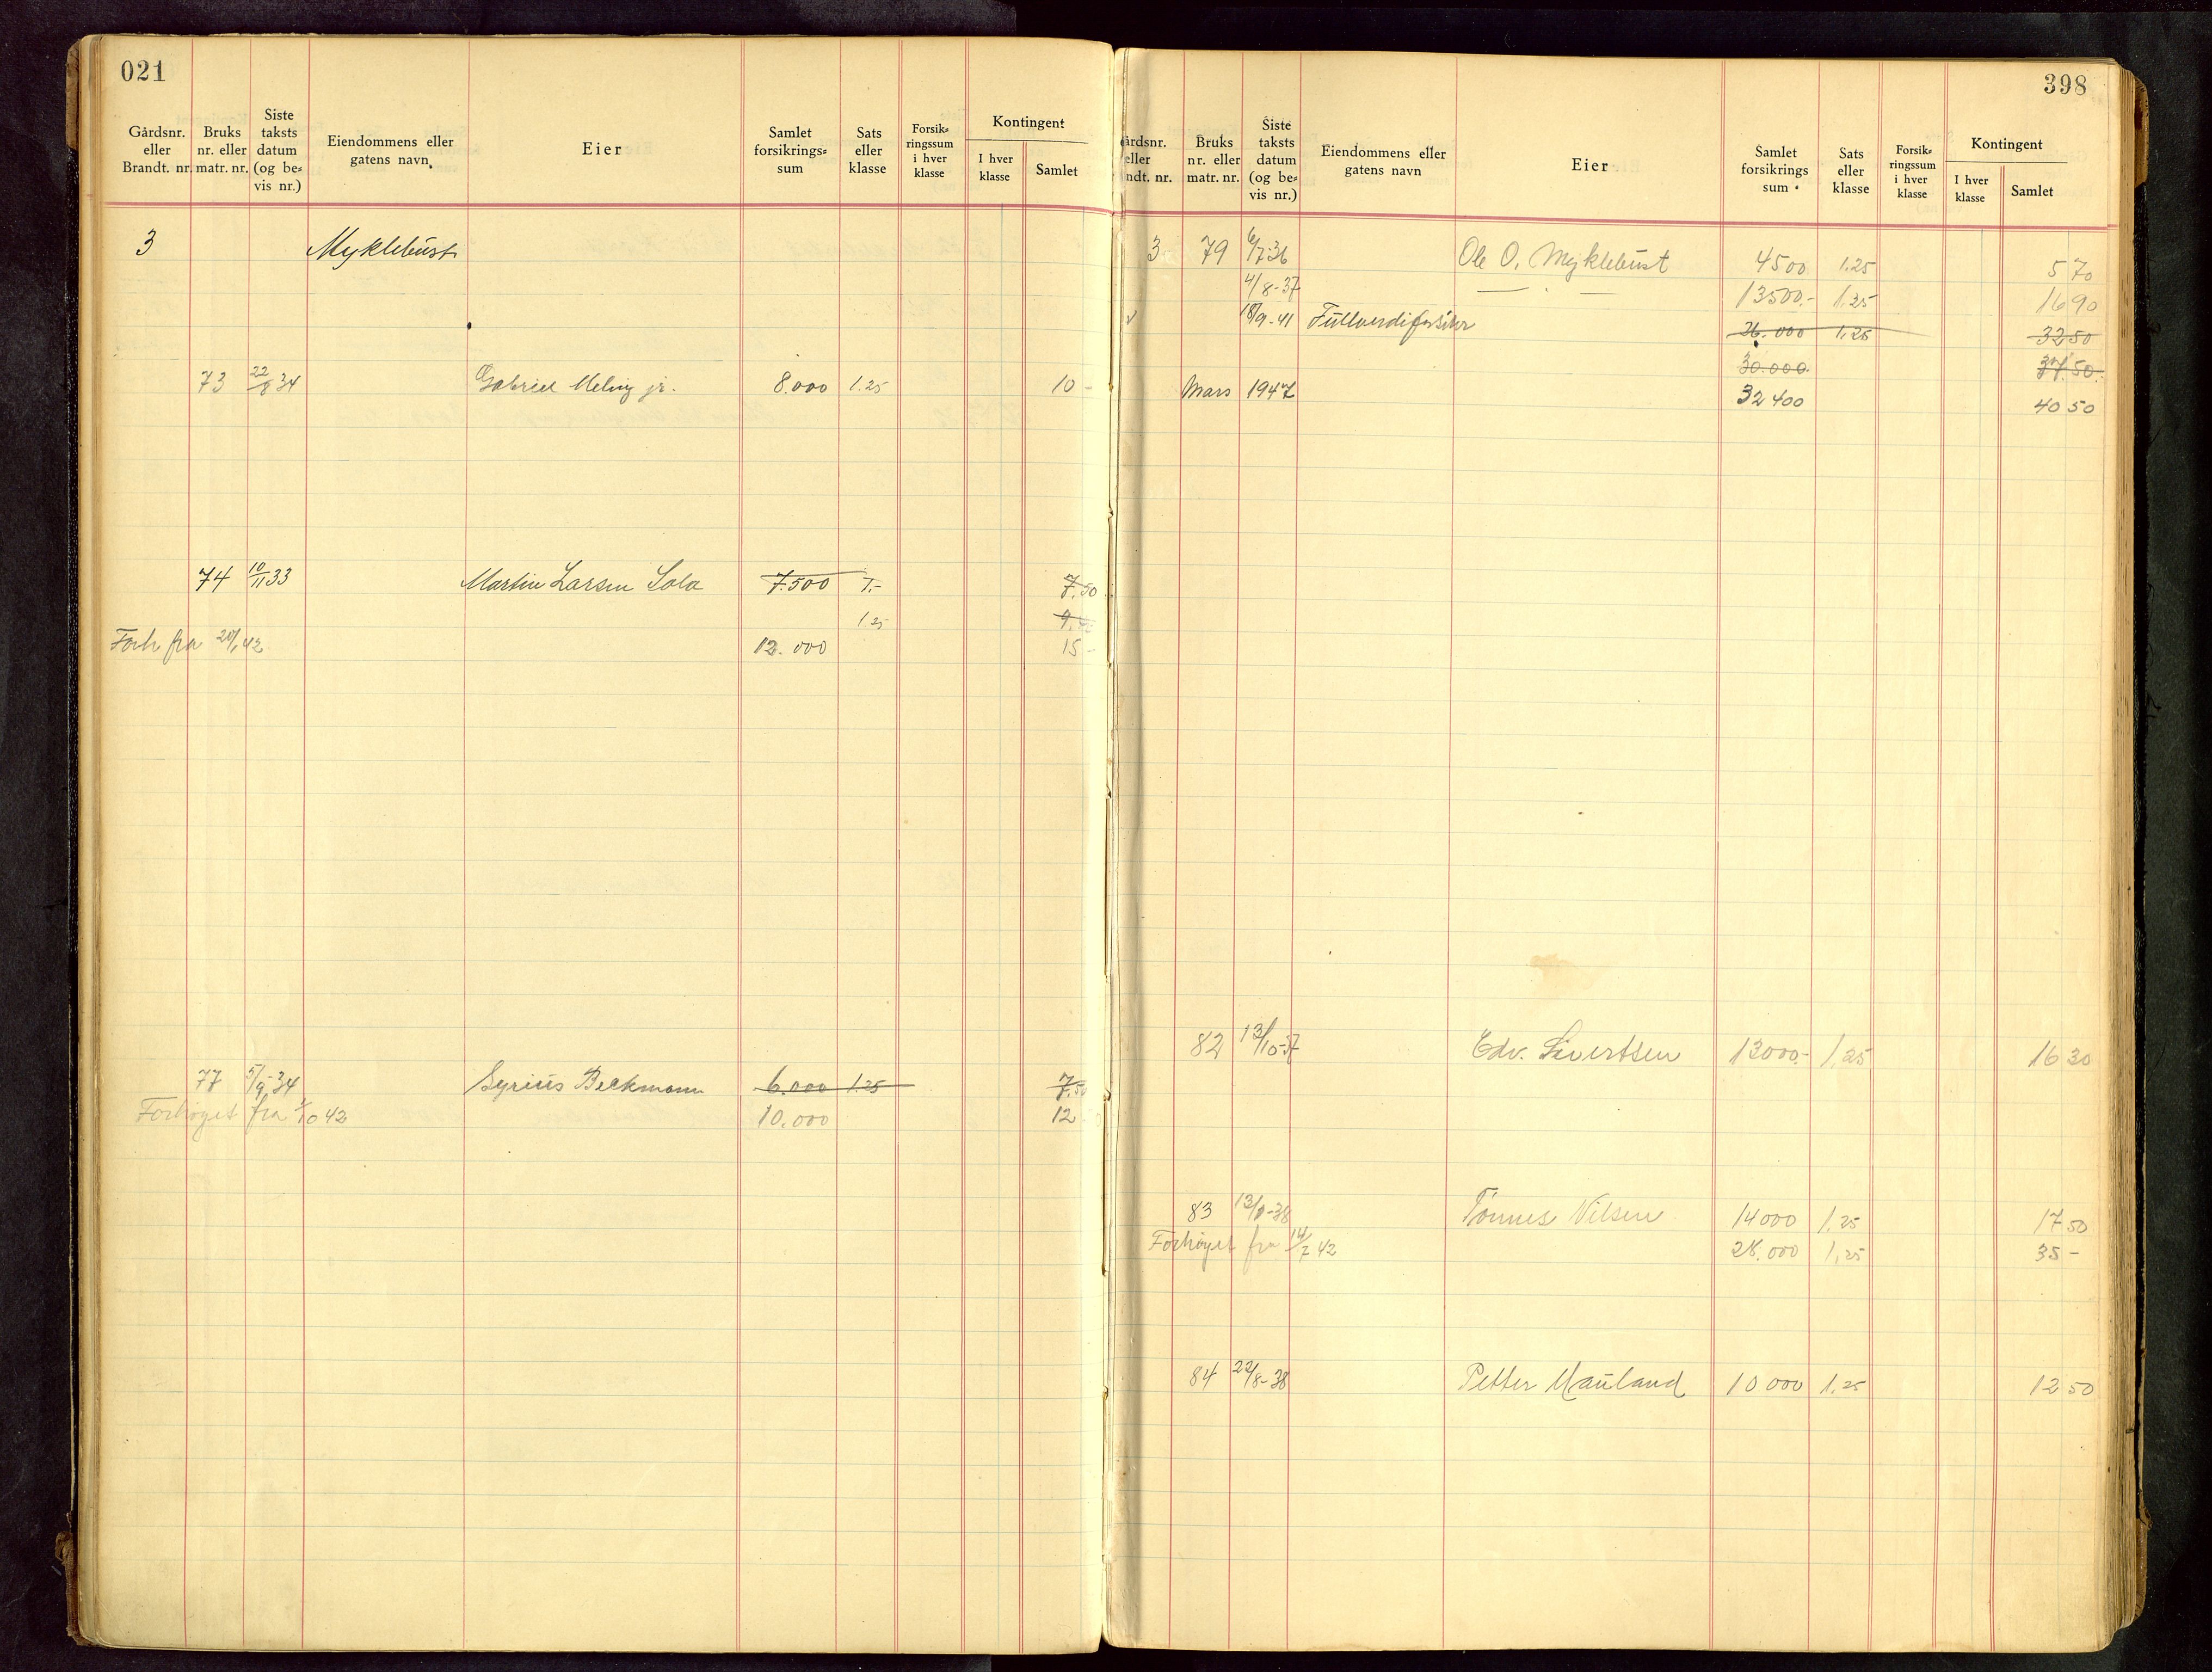 021
Gårdsnr. eller Brandt. nr. Bruks nr. eller matr. nr. Siste taksts datum (og bevis nr.) Eiendommens eller gatens navn. Eier Samlet forsikrings= sum Sats eller klasse Forsik= ringssum i hver klasse Kontingent I hver klasse Samlet
3 Myklebust
73 22/8 34 Gabriel Meling jr. 8.000 1.25 10 -
74 10/11 33 Martin Larsen Sola 7.500 1.- 7.50
1.25
Forh fra 20/1 42 12.000 15 -
77 5/9-34 Syrius Beckmann 6.000 1.25 7.50
Forhøyet fra 1/10 42 10.000 12
398
årdsnr. eller ndt. nr. Bruks nr. eller matr. nr. Siste taksts datum (og be= vis nr.) Eiendommens eller gatens navn Eier Samlet forsikrings sum Sats eller klasse Forsik= ringssum i hver klasse Kontingent I hver klasse Samlet
3 79 6/7-36 Ole O. Myklebust 4500 1.25 5 70
4/8-37 — " — 13500.- 1.25 16 90
v 18/9-41 Fullverdiforsikr 26.000 1,25 32 50
30.000. 37.50.
Mars 1947 32 400 40 50
82 13/10-37 Edv. Sivertsen 13000.- 1,25 16 30
83 Tønnes Nilsen 14000 1.25 17 50
Forhøyet fra 14/7 42 28.000 1,25 35 -
84 22/8-38 Petter Mauland 10 000 1,25 12 50